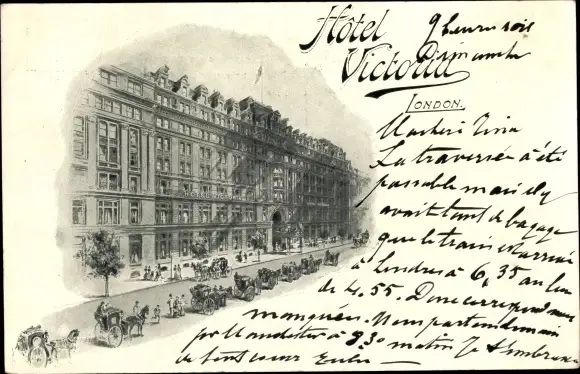 Hôtel
Victoria
LONDON.
9 heures soir
Dimanche
Ma chérie
La traversée a été
passable mais il y
avait tant de bagage
que le train est arrivé
à Londres à 6,35 au lieu
de 4.55. Donc correspondance
manquée. Nous partons demain
pour Manchester à 9.30 matin Je t'embrasse
de tout coeur